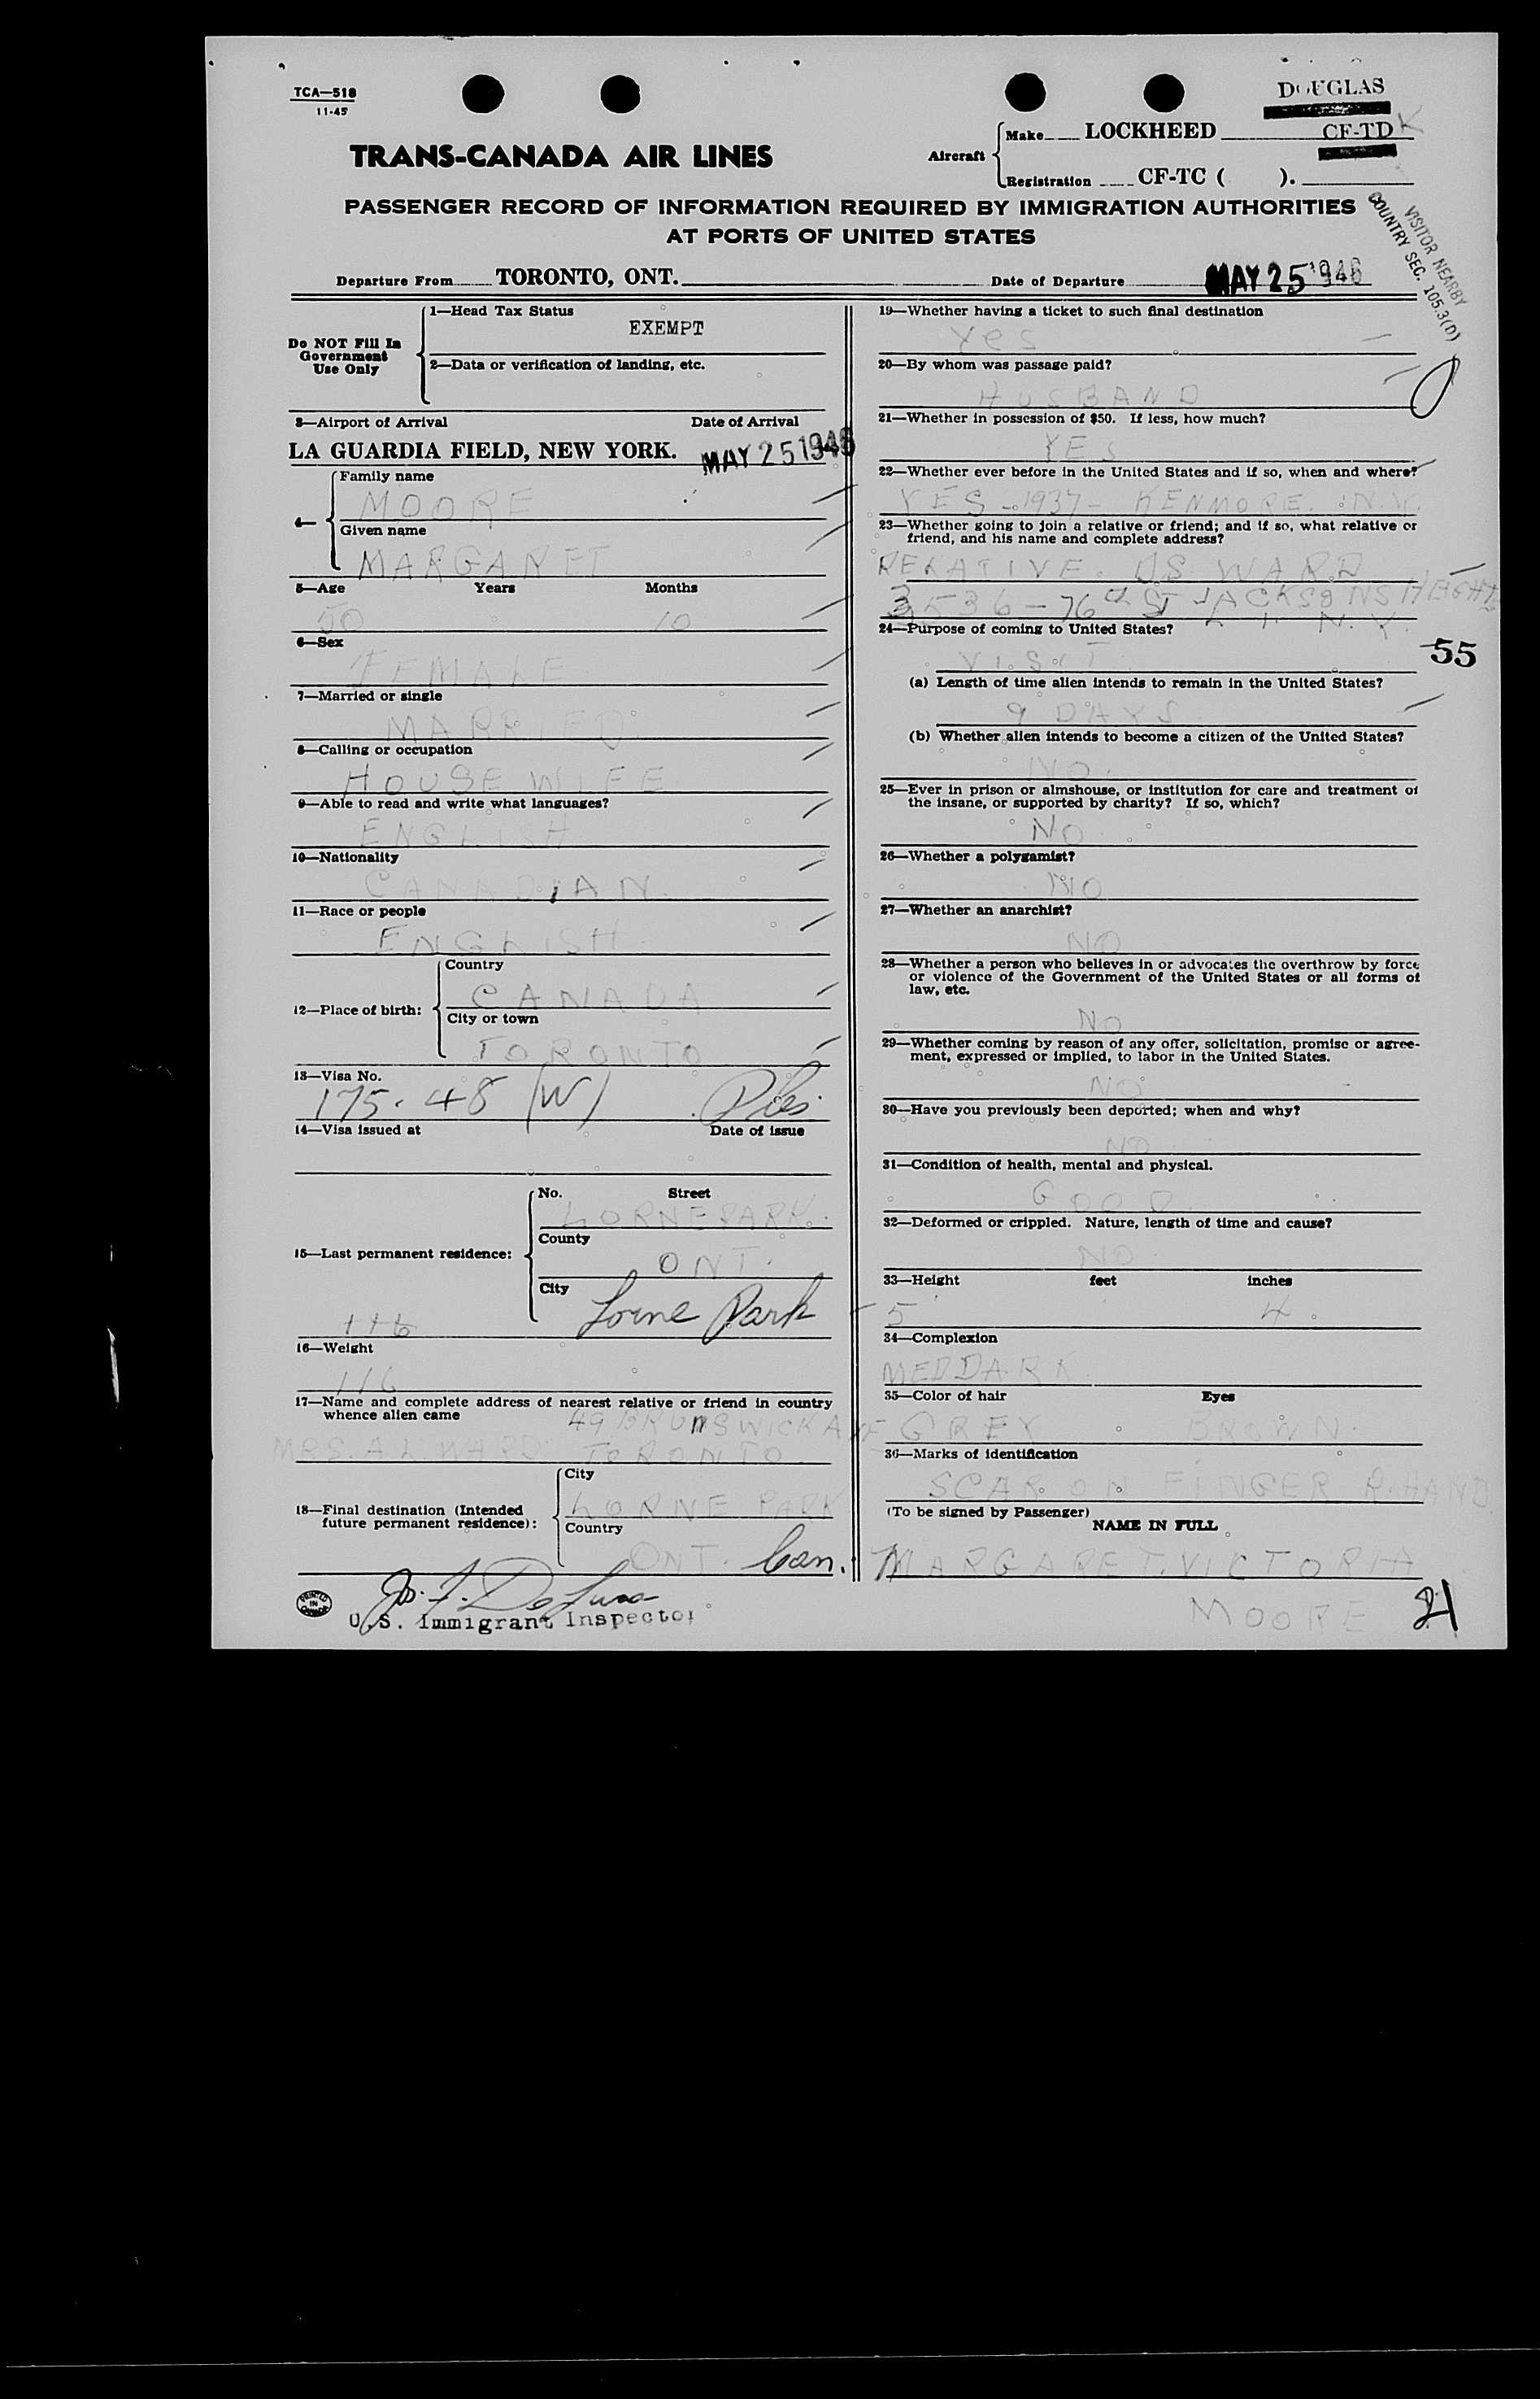 TCA—518
11-45
DOUGLAS
TRANS-CANADA AIR LINES
Aircraft
Make LOCKHEED CF-TDK
Registration CF-TC ( ).
PASSENGER RECORD OF INFORMATION REQUIRED BY IMMIGRATION AUTHORITIES
AT PORTS OF UNITED STATES
VISITOR NEARBY
COUNTRY SEC. 105.3(D)
Departure From TORONTO, ONT. Date of Departure MAY 25 1946
Do NOT Fill In
Government
Use Only
1—Head Tax Status
EXEMPT
2—Data or verification of landing, etc.
3—Airport of Arrival Date of Arrival
LA GUARDIA FIELD, NEW YORK. MAY 25 1946
4—
Family name
MOORE
Given name
MARGARET
5—Age Years Months
50 10
6—Sex
FEMALE
7—Married or single
MARRIED
8—Calling or occupation
HOUSEWIFE
9—Able to read and write what languages?
ENGLISH
10—Nationality
CANADIAN.
11—Race or people
ENGLISH.
12—Place of birth:
Country
CANADA
City or town
TORONTO
13—Visa No.
175-48 (W)
14—Visa issued at Date of issue
15—Last permanent residence:
No. Street
LORNE PARK.
County
ONT.
City
Lorne Park
116
16—Weight
116
17—Name and complete address of nearest relative or friend in country
whence alien came
49 BRUNSWICK AVE
MRS. A.L. WARD. TORONTO.
18—Final destination (Intended
future permanent residence):
City
LORNE PARK
Country
ONT. Can.
PRINTED IN CANADA
U.S. Immigrant Inspector
19—Whether having a ticket to such final destination
Yes
20—By whom was passage paid?
HUSBAND
21—Whether in possession of $50. If less, how much?
YES
22—Whether ever before in the United States and if so, when and where?
YES - 1937 - KENMORE. N.Y.
23—Whether going to join a relative or friend; and if so, what relative or
friend, and his name and complete address?
RELATIVE. D.S. WARD
3536-76th ST JACKSONS HEIGHTS
L.I. N.Y.
24—Purpose of coming to United States?
VISIT
55
(a) Length of time alien intends to remain in the United States?
9 DAYS
(b) Whether alien intends to become a citizen of the United States?
NO.
25—Ever in prison or almshouse, or institution for care and treatment of
the insane, or supported by charity? If so, which?
NO
26—Whether a polygamist?
NO
27—Whether an anarchist?
NO
28—Whether a person who believes in or advocates the overthrow by force
or violence of the Government of the United States or all forms of
law, etc.
NO
29—Whether coming by reason of any offer, solicitation, promise or agree-
ment, expressed or implied, to labor in the United States.
NO
30—Have you previously been deported; when and why?
NO
31—Condition of health, mental and physical.
GOOD
32—Deformed or crippled. Nature, length of time and cause?
NO
33—Height feet inches
5 4
34—Complexion
MED DARK
35—Color of hair Eyes
GREY BROWN.
36—Marks of identification
SCAR ON FINGER R. HAND
(To be signed by Passenger)
NAME IN FULL
MARGARET. VICTORIA
MOORE
21